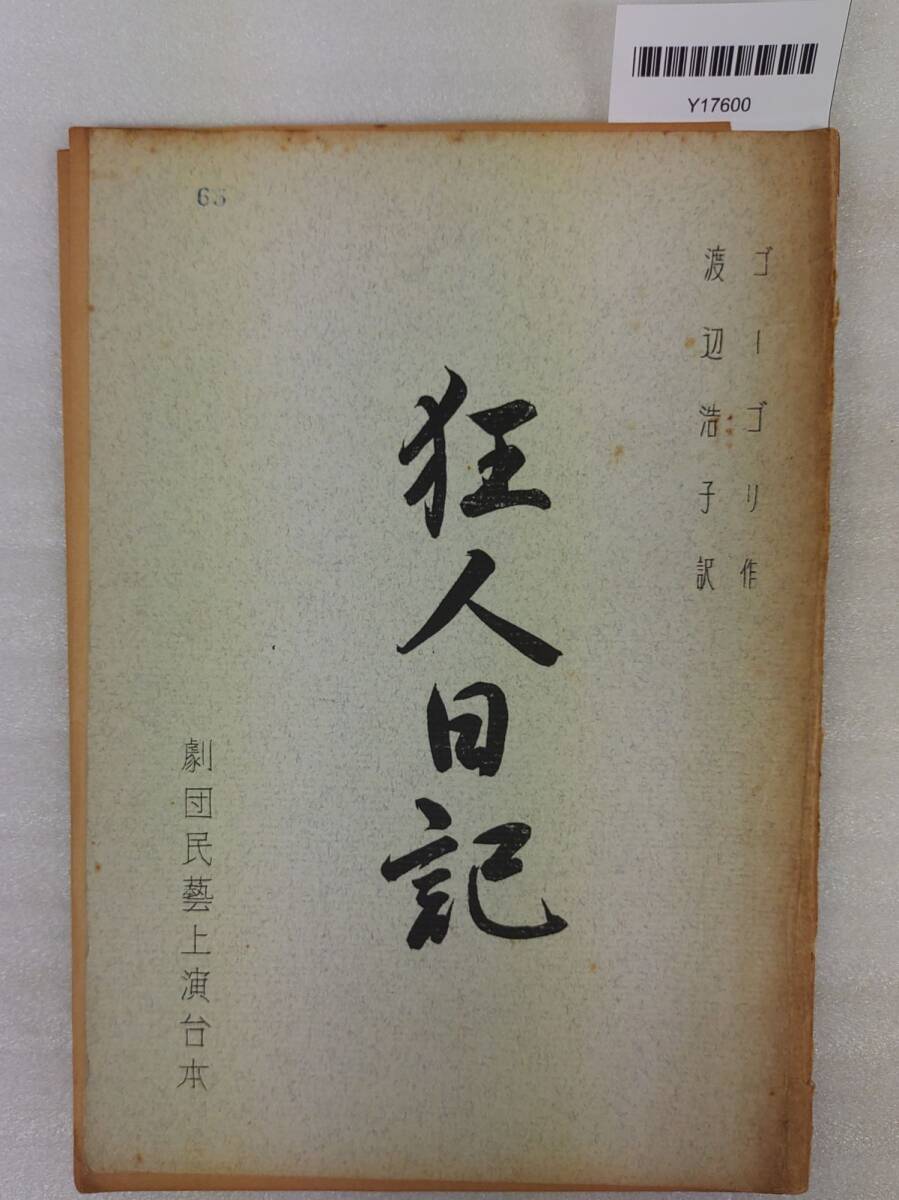 Y17600
ゴーゴリ作
渡辺浩子訳
狂人日記
劇団民藝上演台本